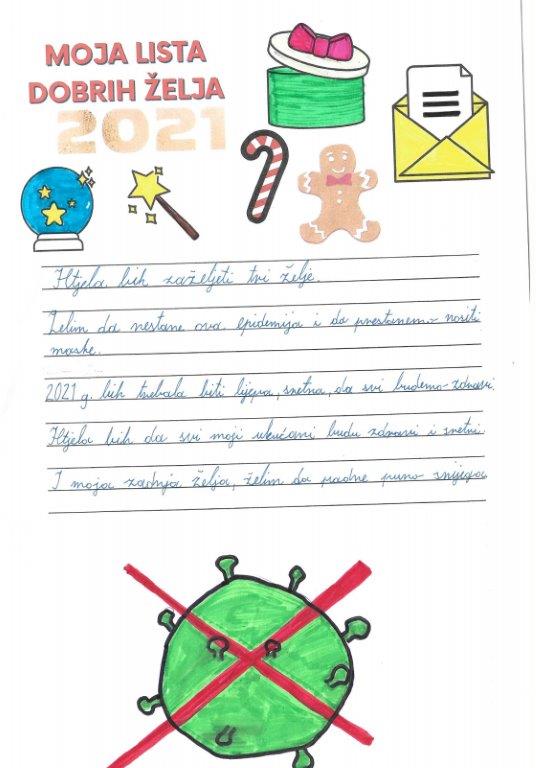 MOJA LISTA
DOBRIH ŽELJA
2021
Htjela bih zaželjeti tri želje.
Želim da nestane ova epidemija i da prestanemo nositi
maske.
2021 g. bih trebala biti lijepa, sretna, da svi budemo zdravi.
Htjela bih da svi moji ukućani budu zdravi i sretni.
I moja zadnja želja, želim da padne puno snijega.